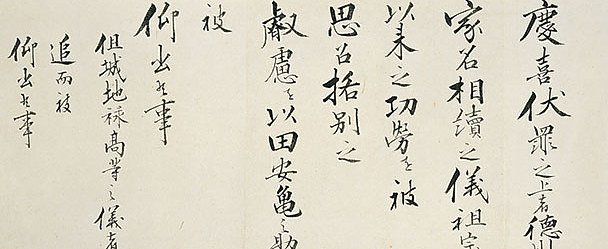 慶喜伏罪之上者德川
家名相續之儀祖宗
以来之功勞を被
思召格別之
叡慮を以田安亀之助
被
仰出候事
但城地禄高等之儀者
追而被
仰出候事